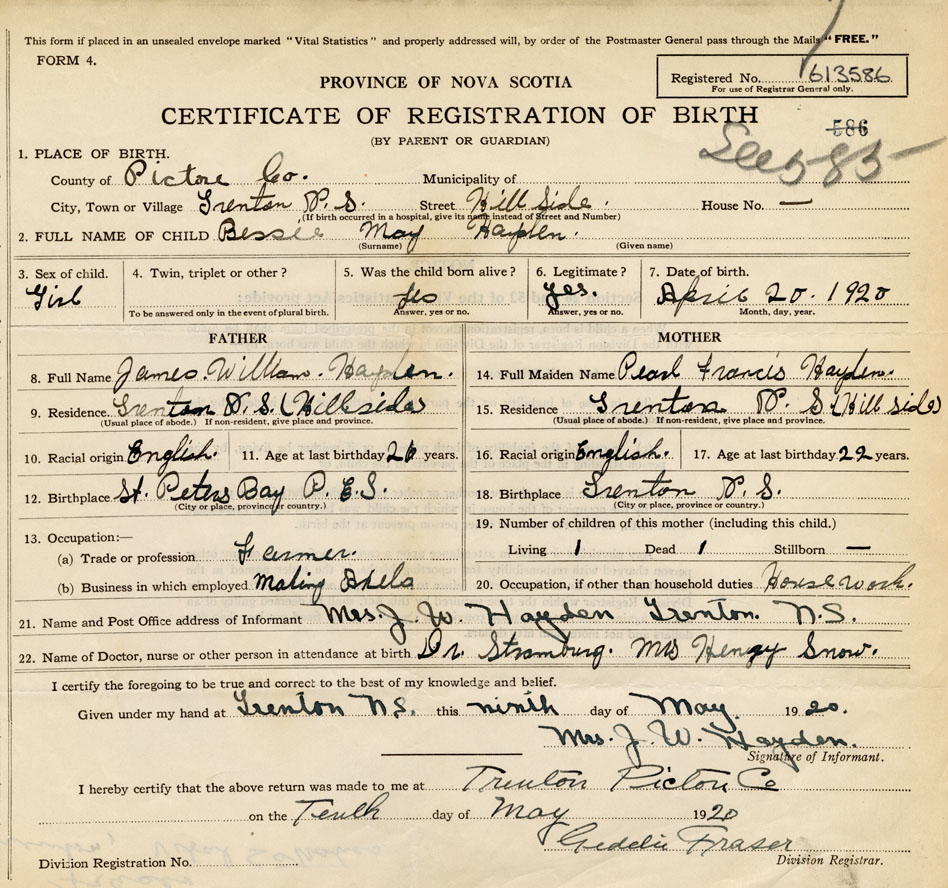 This form if placed in an unsealed envelope marked "Vital Statistics" and properly addressed will, by order of the Postmaster General pass through the Mails "FREE."
FORM 4.
Registered No. 613586
For use of Registrar General only.
PROVINCE OF NOVA SCOTIA
CERTIFICATE OF REGISTRATION OF BIRTH
586
(BY PARENT OR GUARDIAN)
See 585
1. PLACE OF BIRTH.
County of Pictou Co. Municipality of
City, Town or Village Trenton N.S. Street Hill Side. House No. —
(If birth occurred in a hospital, give its name instead of Street and Number)
2. FULL NAME OF CHILD Bessie May Hayden.
(Surname) (Given name)
3. Sex of child. 4. Twin, triplet or other? 5. Was the child born alive? 6. Legitimate? 7. Date of birth.
Girl yes yes. April 20. 1920
To be answered only in the event of plural birth. Answer, yes or no. Answer, yes or no. Month, day, year.
FATHER MOTHER
8. Full Name James. William. Hayden. 14. Full Maiden Name Pearl Francis Hayden.
9. Residence. Trenton N.S. (Hillside) 15. Residence Trenton N.S. (Hill side)
(Usual place of abode.) If non-resident, give place and province. (Usual place of abode.) If non-resident, give place and province.
10. Racial origin English. 11. Age at last birthday years. 16. Racial origin English. 17. Age at last birthday 22 years.
12. Birthplace St. Peters Bay P. E. 18. Birthplace Trenton N.S.
(City or place, province or country.) (City or place, province or country.)
13. Occupation:— 19. Number of children of this mother (including this child.)
(a) Trade or profession Farmer. Living 1 Dead 1 Stillborn —
(b) Business in which employed Making 20. Occupation, if other than household duties House work.
21. Name and Post Office address of Informant Mrs. J. W. Hayden Trenton. N.S.
22. Name of Doctor, nurse or other person in attendance at birth Dr. Mrs Henry Snow.
I certify the foregoing to be true and correct to the best of my knowledge and belief.
Given under my hand at Trenton N.S. this ninth day of May 1920.
Mrs. J. W. Hayden.
Signature of Informant.
I hereby certify that the above return was made to me at Trenton Pictou Co
on the Tenth day of May 1920
Geddie Fraser
Division Registrar.
Division Registration No.